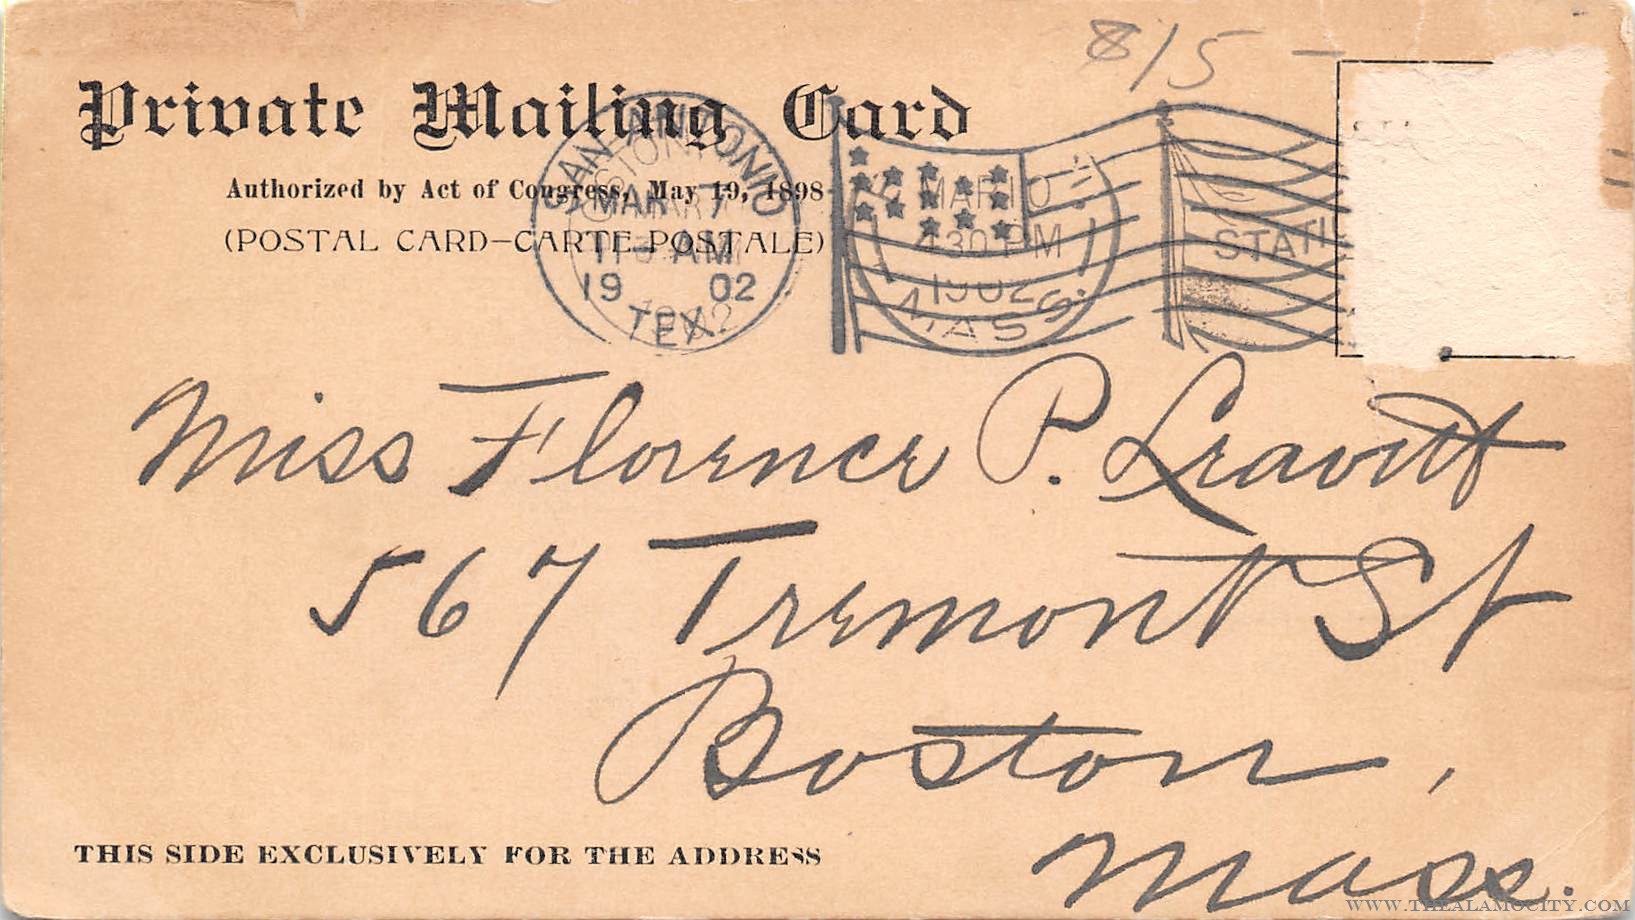 8/15 -
Private Mailing Card
Authorized by Act of Congress, May 19, 1898
(POSTAL CARD-CARTE POSTALE)
SAN ANTONIO
MAR 7
11 AM
1902
TEX.
MAR 10
430 PM
1902
MASS.
STATI
Miss Florence P. Leavitt
567 Tremont St
Boston,
Mass.
THIS SIDE EXCLUSIVELY FOR THE ADDRESS
WWW.THEALAMOCITY.COM